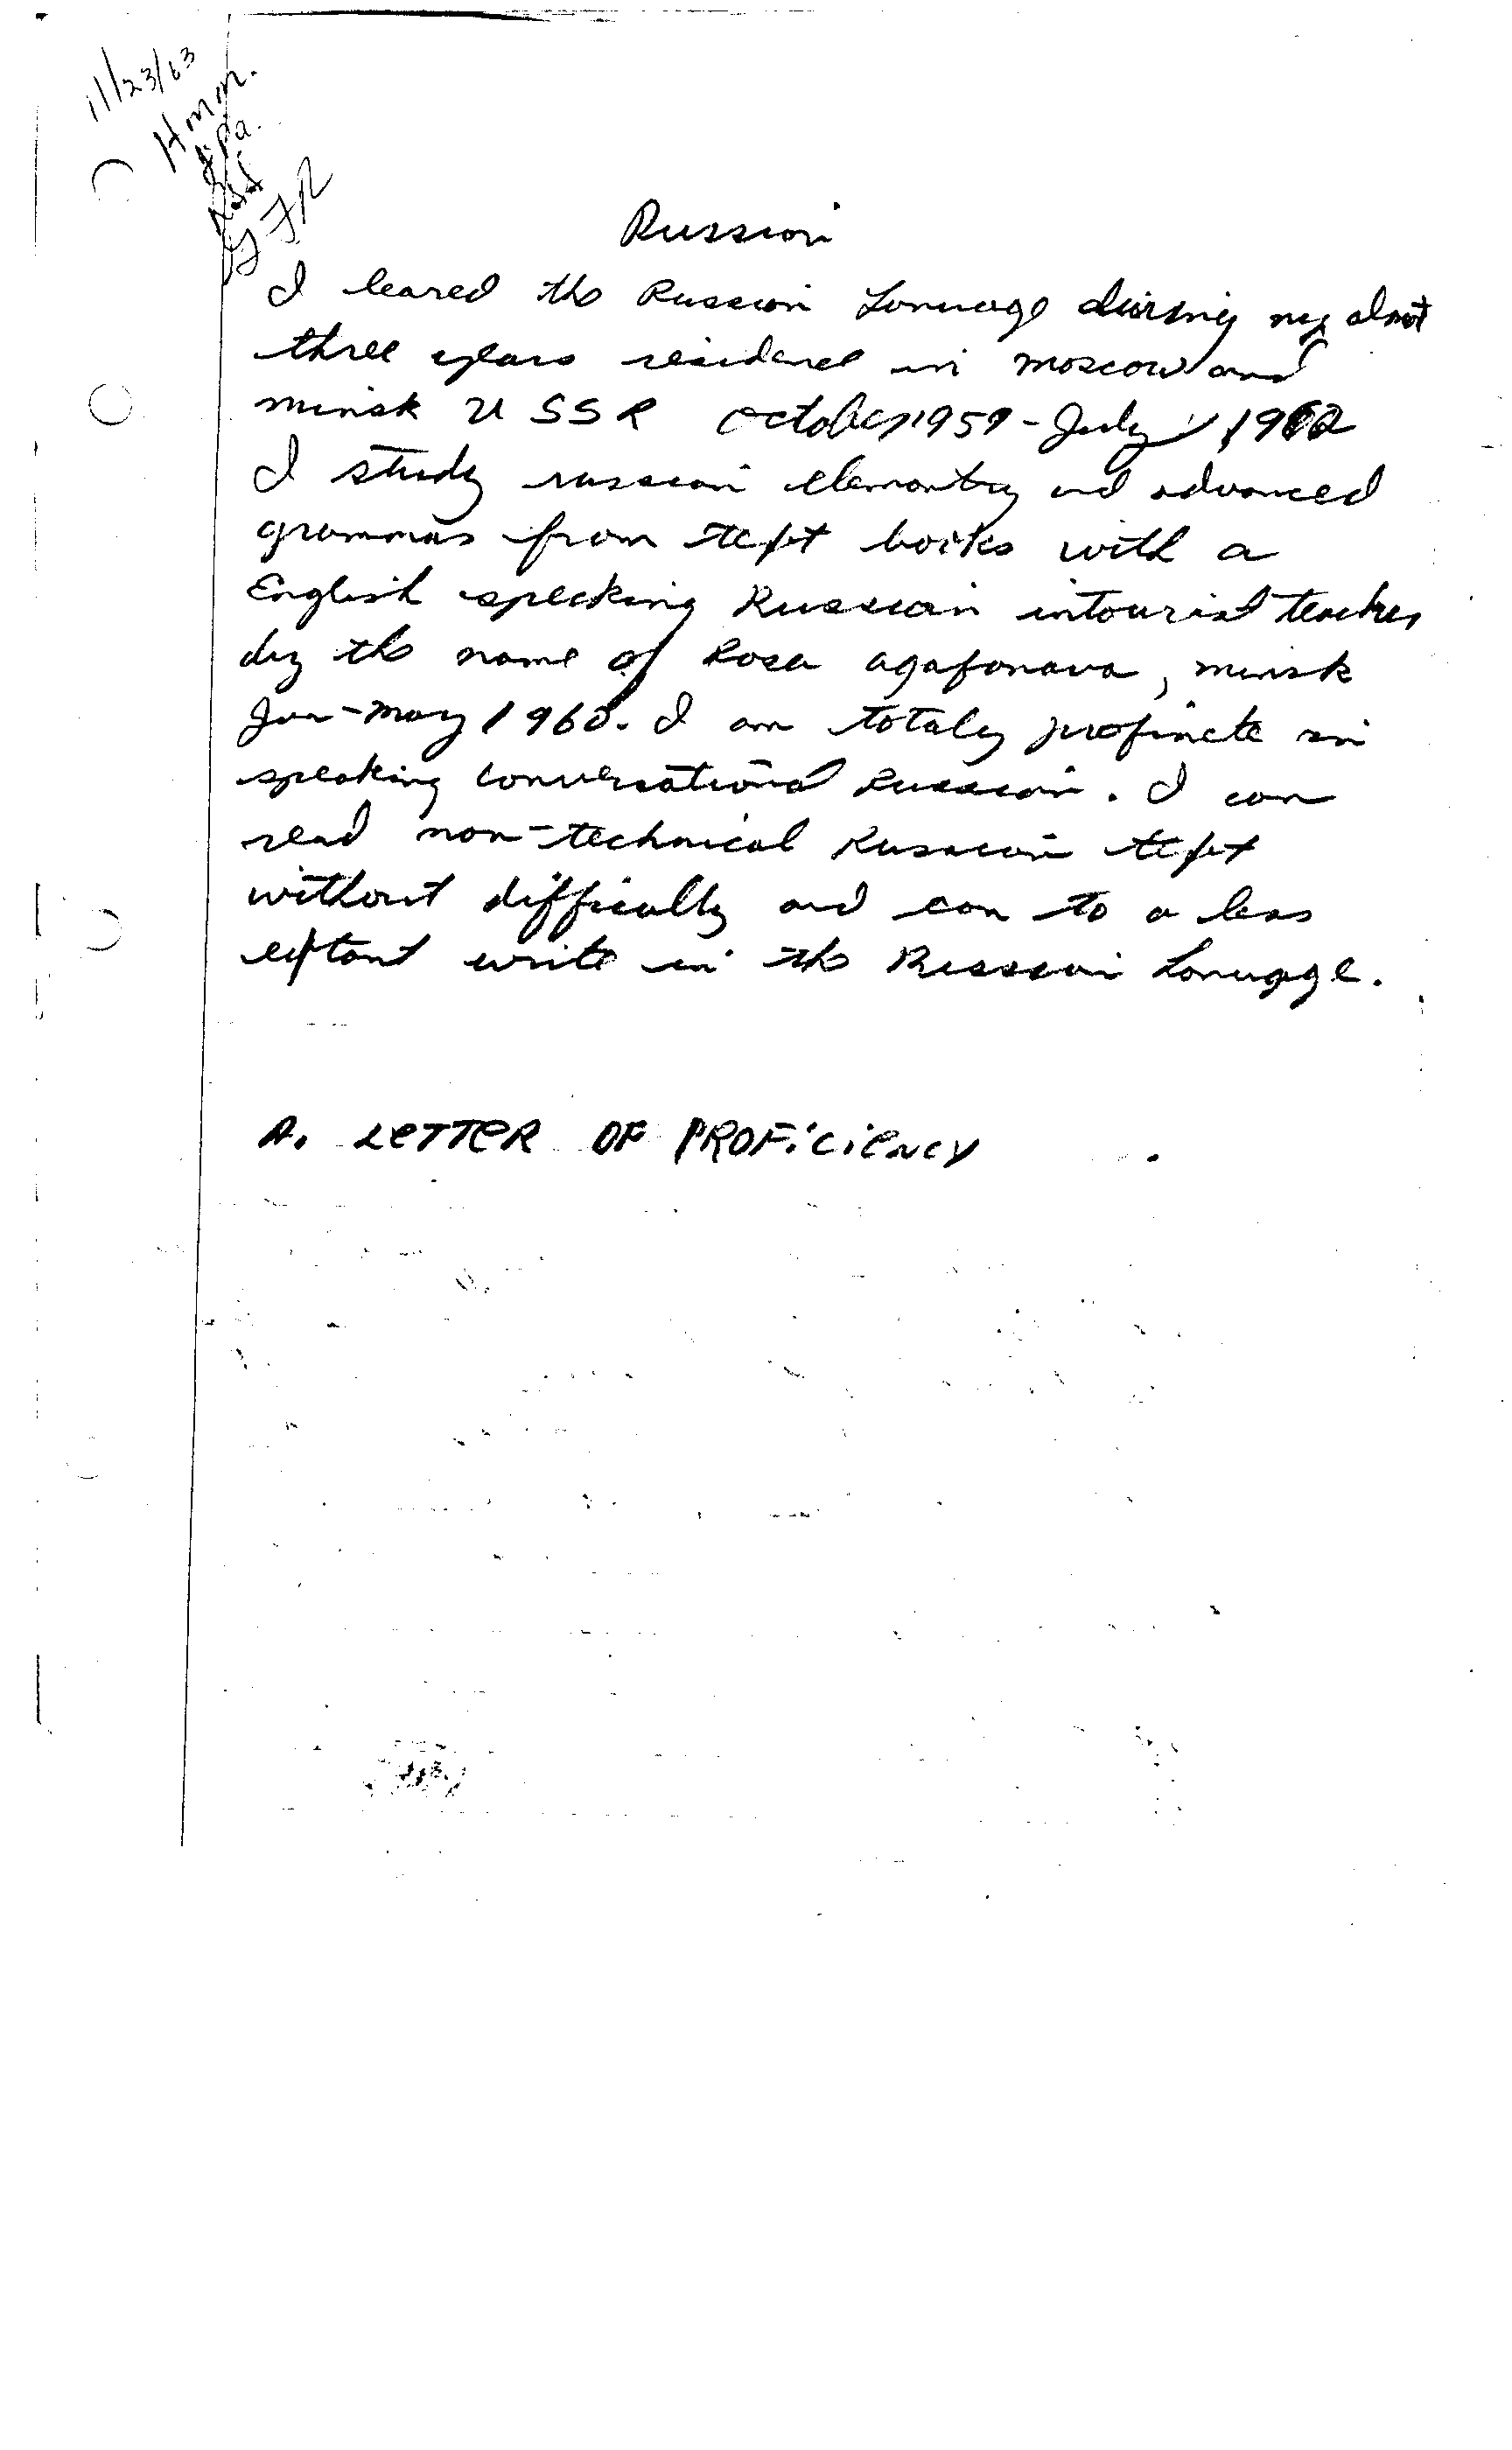 11/23/63
Hmm.
GFR
Russian
I leared the Russian Lanuage during my almost
three years residence in Moscow and
minsk USSR October 1959 - July, 1962
I study russian elementry and advanced
grammar from text books with a
English specking Russian intourist teacher
by the name of Rosa agafonava, minsk
Jan-May 1960. I am totaly profincte in
speaking conversational Russian. I can
read non-technical Russian text
without difficulty and can to a less
extant write in the Russian Lanugage.
A. LETTER OF PROFICIENCY